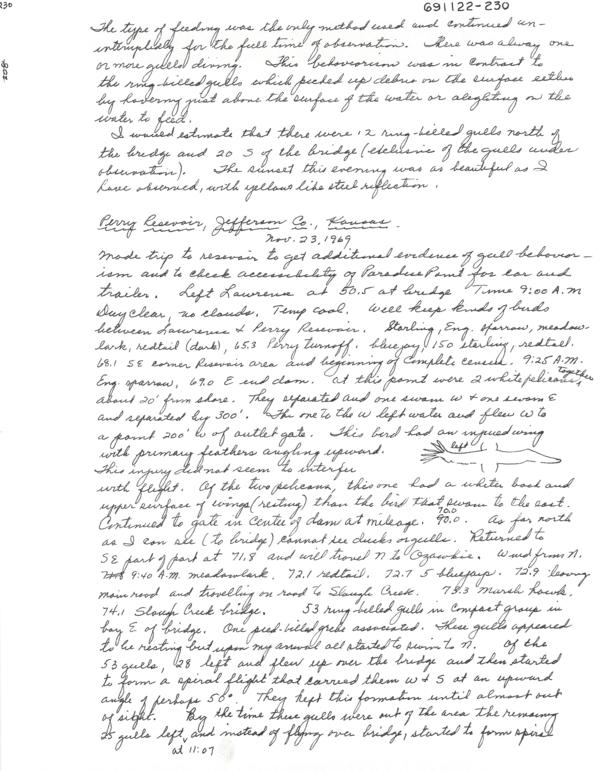 230
691122-230
208
The type of feeding was the only method used and continued un-
interruptedly for the full time of observation. There was alway one
or more gulls dining. This behaviorism was in contrast to
the ring-billed gulls which picked up debris on the surface either
by hovering just above the surface of the water or aleghting on the
water to feed.
I would estimate that there were 12 ring-billed gulls north of
the bridge and 20 S of the bridge (exclusive of the gulls under
observation). The sunset this evening was as beautiful as I
have observed, with yellow like steel reflection.
Perry Resevoir, Jefferson Co., Kansas.
Nov. 23, 1969
Made trip to resevoir to get additional evidence of gull behavior-
ism and to check accessibility of Paradise Point for car and
trailer. Left Lawrence at 50.5 at bridge Time 9:00 A.M
Day clear, no clouds. Temp cool. Will keep kinds of birds
between Lawrence & Perry Resevoir. Starling, Eng. sparrow, meadow-
lark, redtail (dark), 65.3 Perry turnoff. bluejay, 150 starling, redtail.
68.1 SE corner Resevoir area and beginning of complete census. 9:25 A.M.
Eng. sparrow, 69.0 E end dam. At this point were 2 white pelicans, together
about 20' from shore. They separated and one swam W & one swam E
and separated by 300'. The one to the W left water and flew W to
a point 200' W of outlet gate. This bird had an injured wing
with primary feathers angling upward. left
This injury did not seem to interfer
with flight. Of the two pelicans, this one had a whiter back and
upper surface of wings (resting) than the bird that swam to the east.
Continued to gate in Center of dam at mileage. 70.0 90.0. As far north
as I can see (to bridge) cannot see ducks or gulls. Returned to
SE part of part at 71.8 and will travel N to Ozawkie. Wind from N.
9:40 A.M. meadowlark. 72.1 redtail. 72.7 5 bluejays. 72.9 leaving
main road and travelling on road to Slough Creek. 73.3 Marsh hawk.
74.1 Slough Creek bridge. 53 ring-billed gulls in compact group in
bay E of bridge. One pied-billed grebe associated. These gulls appeared
to be resting but upon my arrival all started to swim to N. Of the
53 gulls, 28 left and flew up over the bridge and then started
to form a spiral flight that carried them W & S at an upward
angle of perhaps 50°. They kept this formation until almost out
of sight. By the time these gulls were out of the area the remaining
25 gulls left, and instead of flying over bridge, started to form spiral
at 11:07